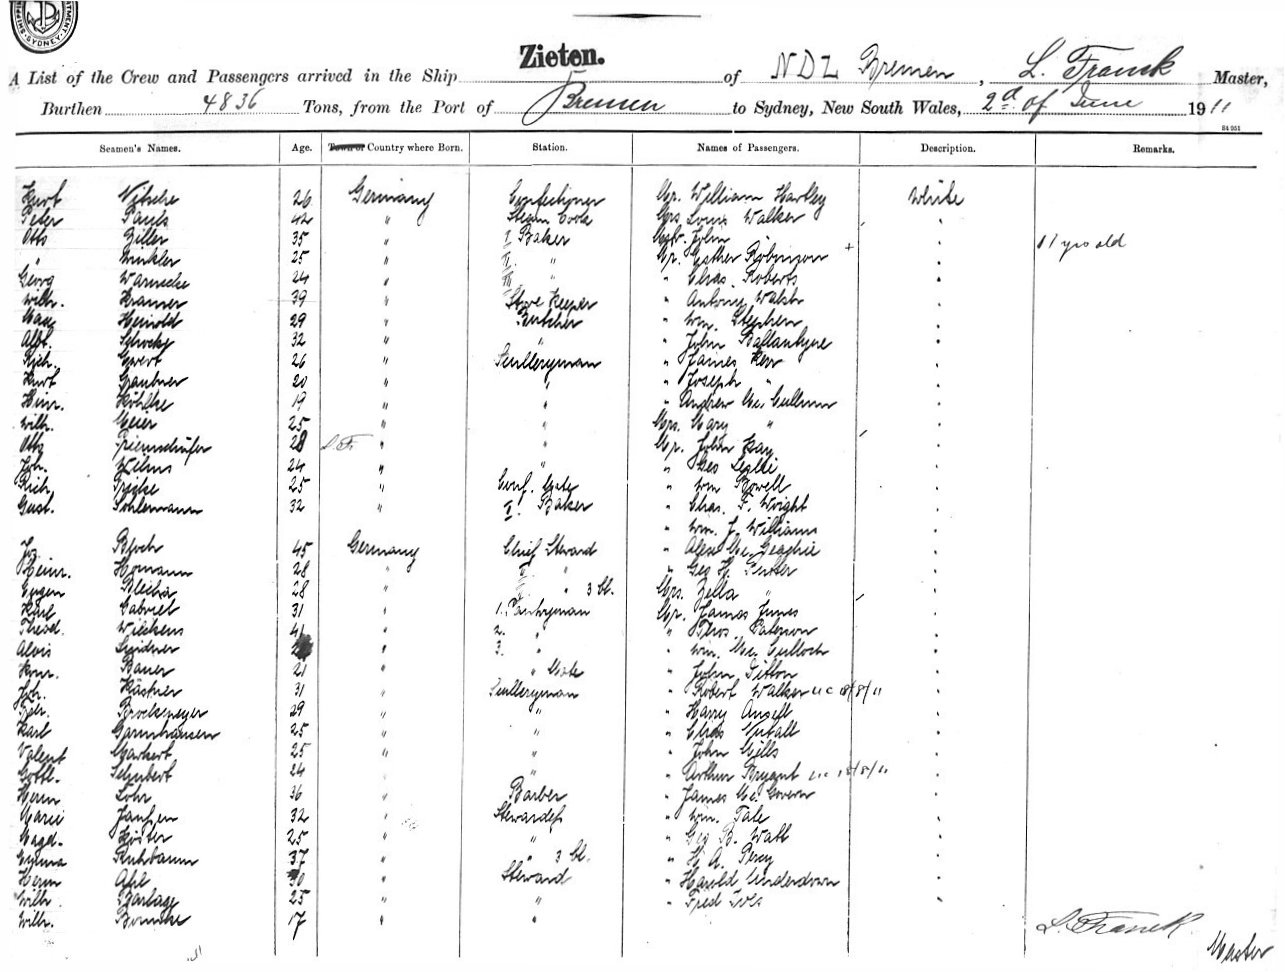 SYDNEY
Zieten.
A List of the Crew and Passengers arrived in the Ship Zieten. of NDL Bremen, L. Franck Master,
Burthen 4836 Tons, from the Port of Bremen to Sydney, New South Wales, 2d of June 1911
84 951
Seamen's Names. Age. Town or Country where Born. Station. Names of Passengers. Description. Remarks.
Kurt 26 Germany Confectioner Mr. William Hartley White
Peter Pauls 42 " Steam Cook Mrs Louis Walker "
Otto Ziller 35 " I Baker John " " 11 yrs old
" Winkler 25 " II " Mr. Esther Robinson "
Georg Warnecke 24 " III " " Chas. Roberts "
Wilh. Kramer 39 " Store Keeper " Antony Walsh "
Max Heinold 29 " Butcher " Wm. Stephen "
Alb. 32 " " " John Ballantyne "
Rich. 26 " Sculleryman " James Kerr "
Kurt Graubner 20 " " " Joseph " "
Hinr. 19 " " " Andrew Mc. Cullum "
Wilh. Meier 25 " " Mrs. Mary " "
Otto 28 L.F. " " Mr. John Kay "
Joh. Wilms 24 " " " Geo Leslie "
Rich. 25 " Conf. Mate " Wm Rowell "
Gust. Sohlemann 32 " I. Baker " Chas. F. Wright "
" Wm. J. Williams "
Jos. Bloch 45 Germany Chief Steward " Alex Mc. "
Heinr. Homann 28 " II " " Geo H. "
Eugen Blecha 28 " " 3 Cl. Mrs. Zella " "
Karl Gabriel 31 " 1. Pantryman Mr. James Innes "
Theod. Wickens 41 " 2. " " Thos. Paterson "
Alois Lindner " 3. " " Wm. Mc. Culloch "
Konr. Bauer 21 " " Mate " John "
Joh. Kästner 31 " Sculleryman " Robert Walker 18/8/11 "
Brockmeyer 29 " " " Harry Ansell "
Karl Garmhausen 25 " " " Chas Nutall "
Valent Markert 25 " " " John Mills "
Gottl. Schubert 24 " " " Arthur Bryant 18/8/11 "
Herm Lohr 36 " Barber " James Mc. Govern "
Marie Janssen 32 " Stewardess " Wm. Tale "
Magd. Köster 25 " " " Geo B. Watt "
Emma Ruhbaum 37 " " 3 Cl. " H. A. Percy "
Herm Ahl 30 " Steward " Harold Underdown "
Wilh. Bartage 25 " " " Fred Ives "
Wilh. 17 " "
L. Franck
Master